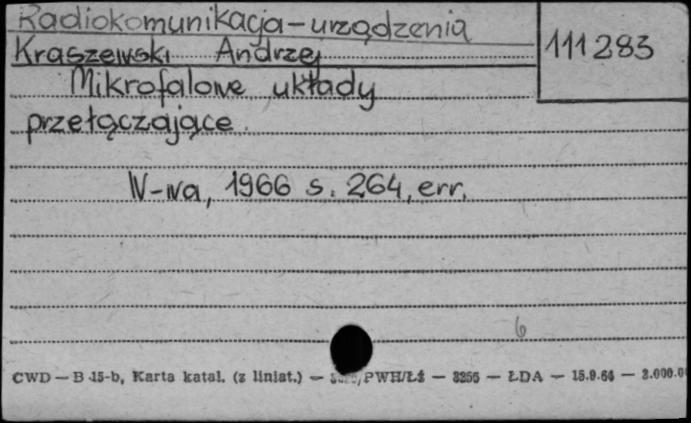 Radiokomunikacja – urządzenia
Kraszewski Andrzej
111283
Mikrofalowe układy
przełączające.
W-wa, 1966 s. 264, err.
6
CWD — B 15-b, Karta katal. (z liniat.) — PWH/Łź — 3256 — ŁDA — 18.9.64 — 2.000.0